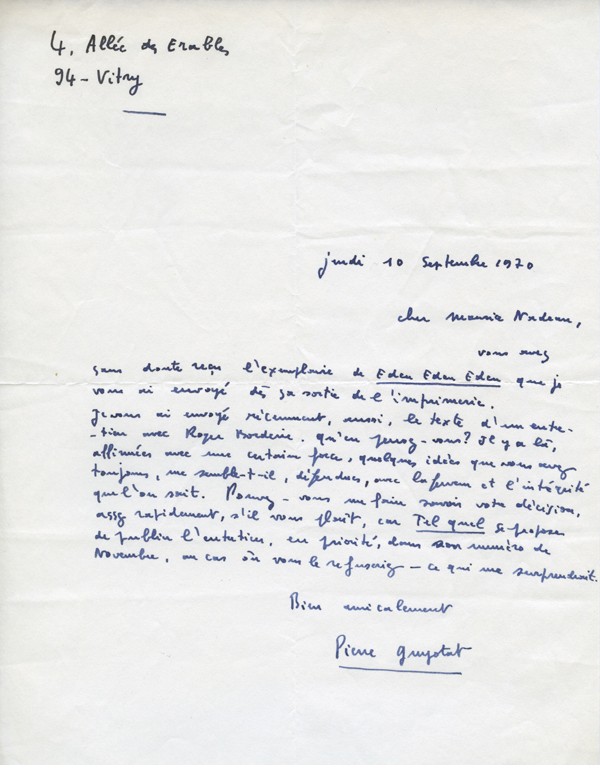 4, Allée des Erables
94 - Vitry
jeudi 10 Septembre 1970
cher Maurice Nadeau,
vous avez
sans doute reçu l'exemplaire de Eden Eden Eden que je
vous ai envoyé dès sa sortie de l'imprimerie.
Je vous ai envoyé récemment, aussi, le texte d'un entre-
-tien avec Roger Borderie. qu'en pensez-vous? Il y a là,
affirmées avec une certaine force, quelques idées que vous avez
toujours, me semble-t-il, défendues, avec la ferveur et l'intégrité
que l'on sait. Pouvez-vous me faire savoir votre décision,
assez rapidement, s'il vous plaît, car Tel quel se propose
de publier l'entretien, en priorité, dans son numéro de
Novembre, au cas où vous le refuseriez - ce qui me surprendrait.
Bien amicalement
Pierre Guyotat